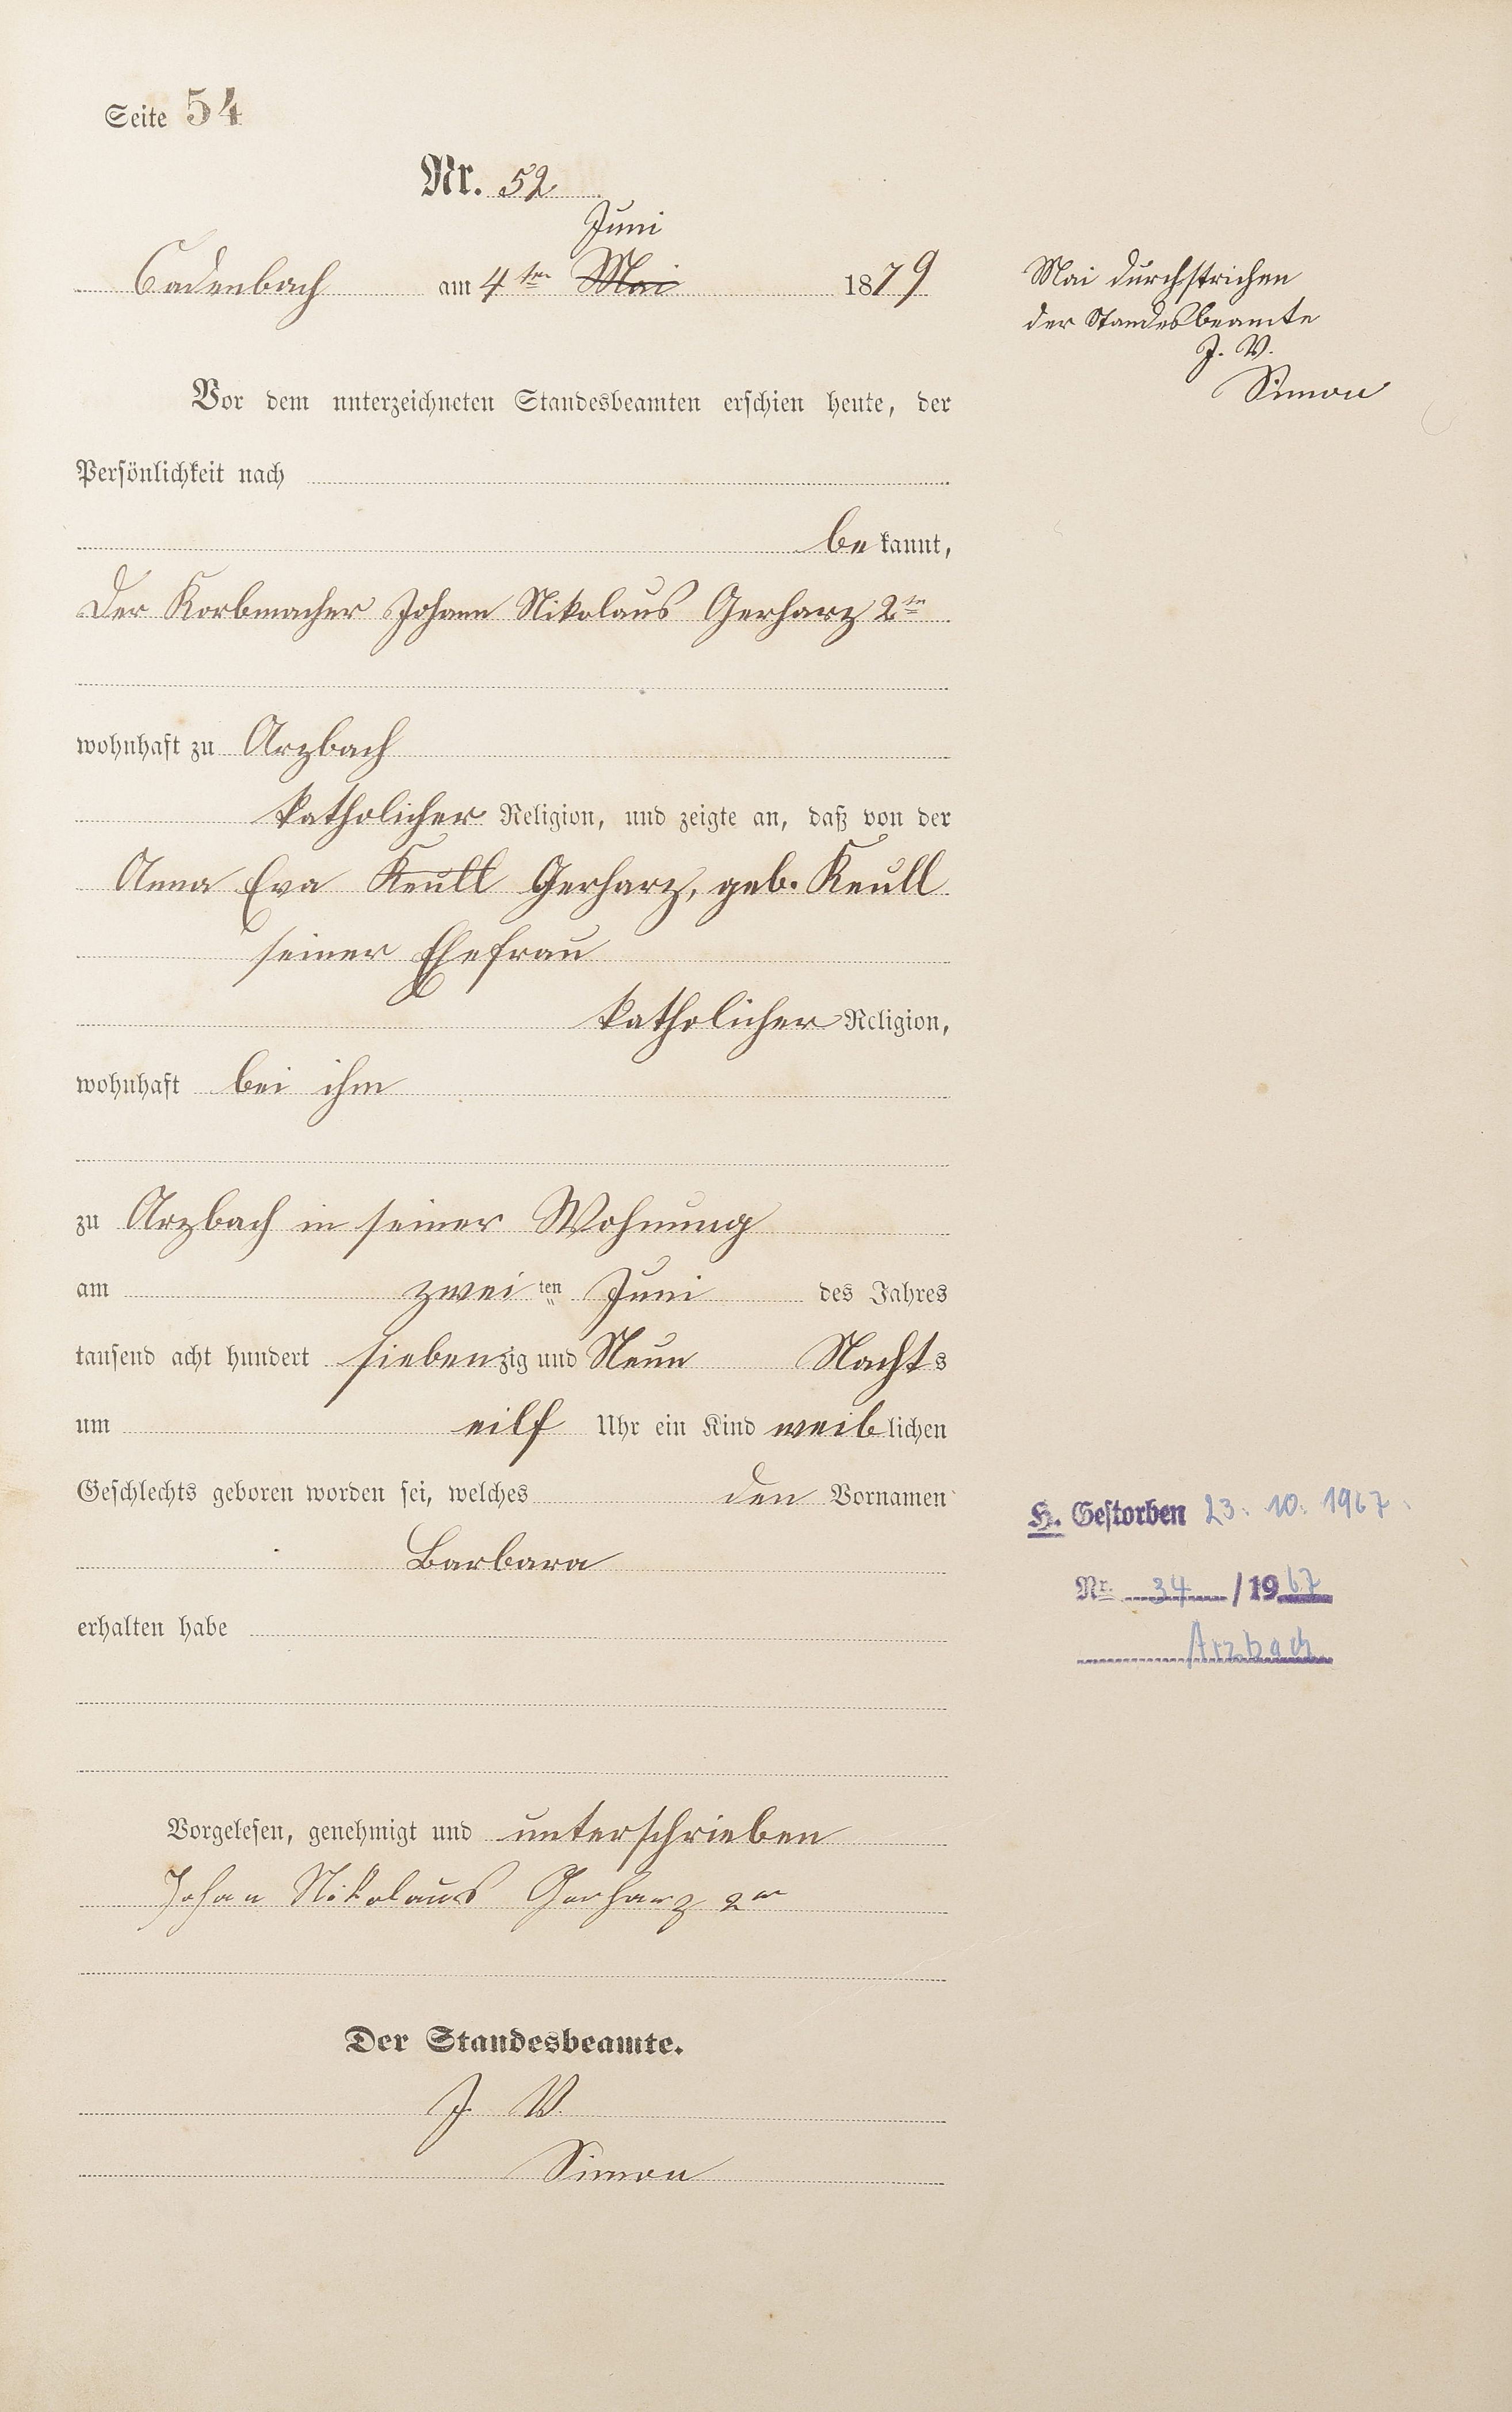 Seite 54
Nr. 52
Juni
Cadenbach am 4ten Mai 1879
Mai durchstrichen
der Standesbeamte
J. V.
Simon
Vor dem unterzeichneten Standesbeamten erschien heute, der
Persönlichkeit nach
bekannt,
Der Korbmacher Johann Nikolaus Gerharz 2te
wohnhaft zu Arzbach
katholicher Religion, und zeigte an, daß von der
Anna Eva Keull Gerharz, geb. Keull
seiner Ehefrau
katholicher Religion,
wohnhaft bei ihm
zu Arzbach in seiner Wohnung
am zweiten Juni des Jahres
tausend acht hundert siebenzig und Neun Nachts
um eilf Uhr ein Kind weiblichen
Geschlechts geboren worden sei, welches den Vornamen
Barbara
erhalten habe
H. Gestorben 23. 10. 1967.
Nr. 34 / 1967
Arzbach
Vorgelesen, genehmigt und unterschrieben
Johan Nikolaus Gerharz 2er
Der Standesbeamte.
J. V.
Simon